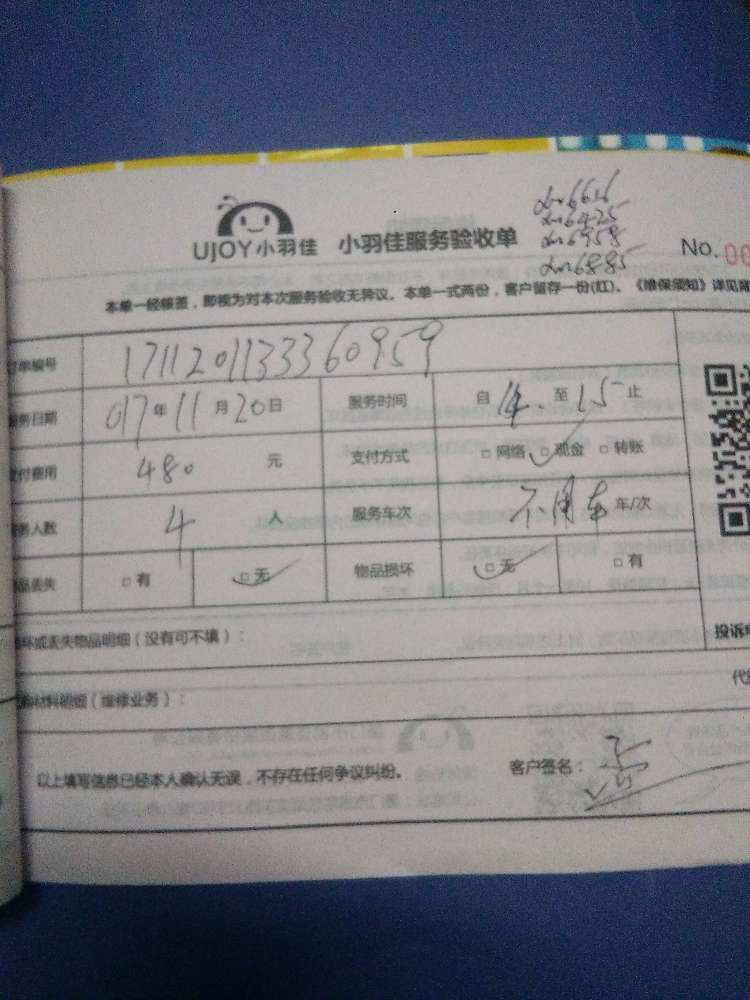 xm6616
xm6425
xm6958
xm6885
UJOY小羽佳 小羽佳服务验收单 No. 00
本单一经核签，即视为对本次服务验收无异议。本单一式两份，客户留存一份(红)。《维保须知》详见背
订单编号 1711201133360959
服务日期 017年11月20日 服务时间 自14.至15止
支付费用 480 元 支付方式 □网络 ☑现金 □转账
服务人数 4 人 服务车次 不用车 车/次
物品丢失 □有 ☑无 物品损坏 ☑无 □有
损坏或丢失物品明细（没有可不填）： 投诉电
材料明细（维修业务）： 代
以上填写信息已经本人确认无误，不存在任何争议纠纷。 客户签名：